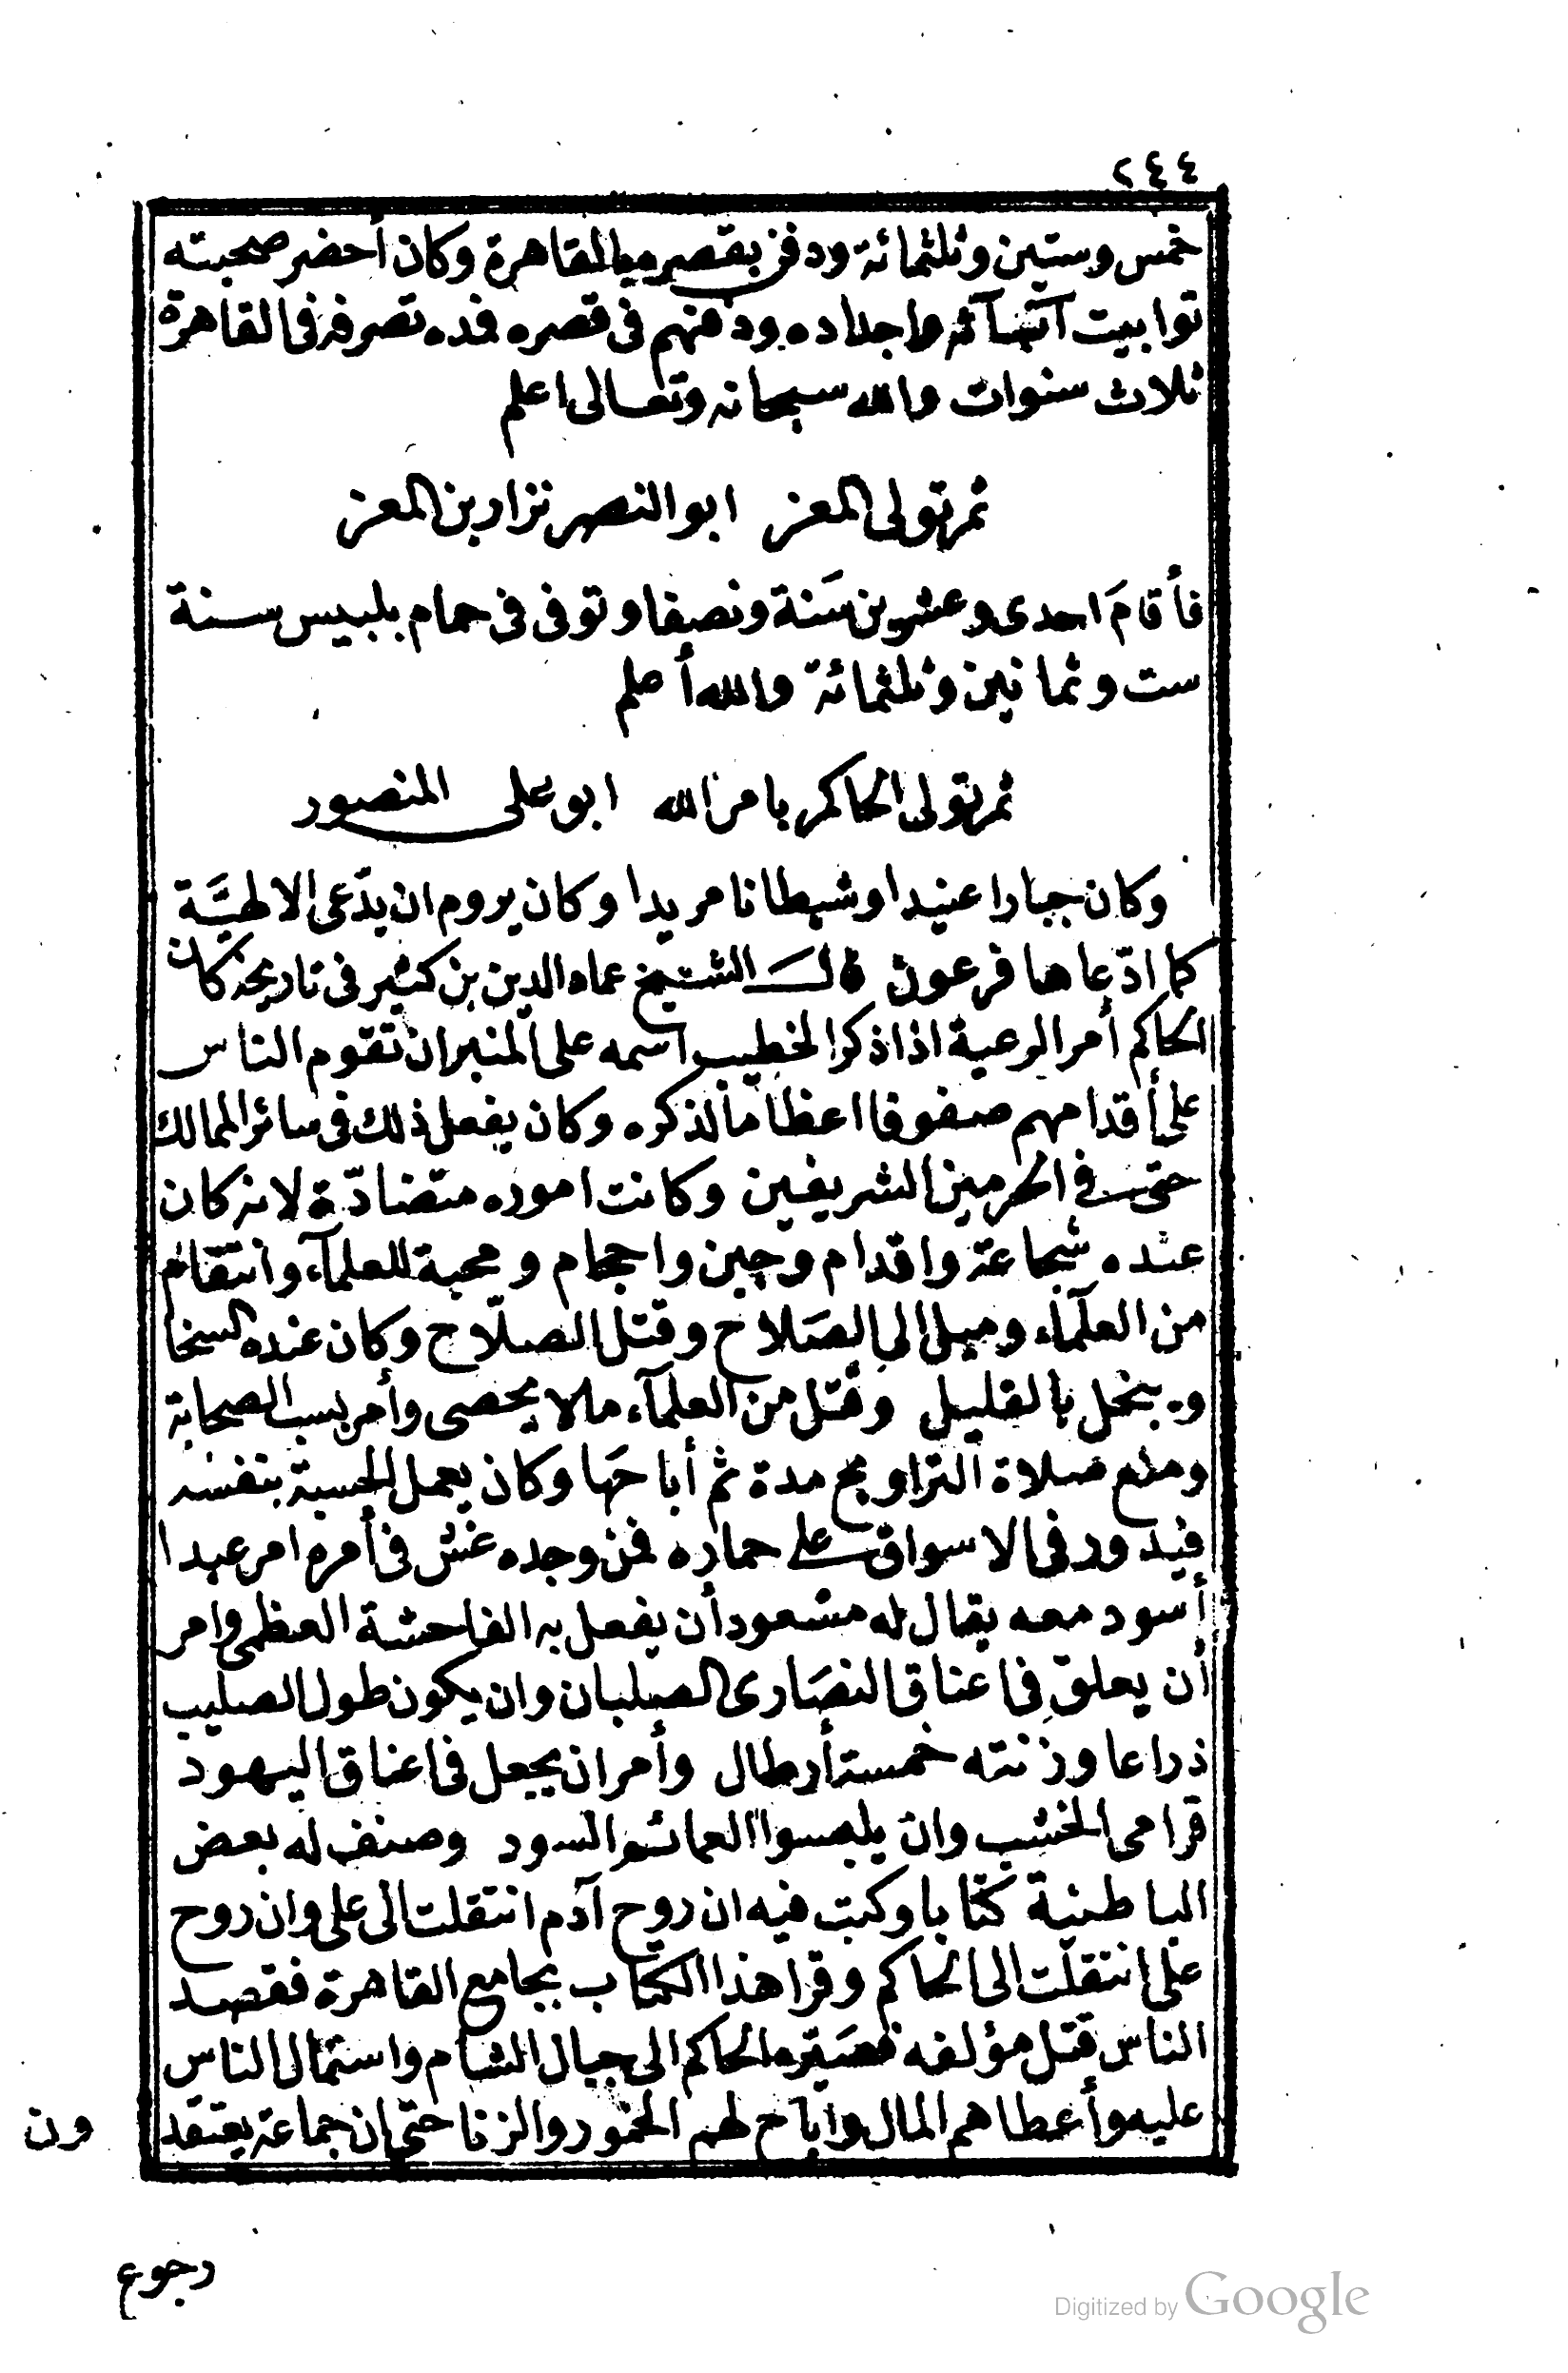 ٢٤٤
خمس وستين وثلثمائة ودفن بقصره بالقاهرة وكان أحضر صحبته
توابيت آبائه واجداده ودفنهم فى قصره فمده تصرفه فى القاهرة
ثلاث سنوات والله سبحانه وتعالى اعلم
ثم تولى المعز ابو النصر نزار بن المعز
فأقامَ احدى وعشرين سَنة ونصفا وتوفى فى حمام بلبيس سنة
ست وثمانين وثلثمائة والله أعلم
ثم تولى الحاكم بامر الله ابو على المنصور
وكان جبارا عنيدا وشيطانا مريدا وكان يروم ان يدّعى الالهيَّة
كما ادّعاها فرعون قالَ الشيخ عماد الدين بن كثير فى تاريخه كان
الحاكم أمر الرعية اذا ذكر الخطيب اسمه على المنبر ان تقوم الناس
على أقدامهم صفوفا اعظاما لذكره وكان يفعل ذلك فى سائر الممالك
حتى فى الحرمين الشريفين وكانت اموره متضادّة لانه كان
عنده شجاعة واقدام وجبن واحجام ومحبة للعلمآء وانتقام
من العلمآء وميل الى الصَلاح وقتل الصلّاح وكان عنده السخا
ويبخل بالقليل وقتل من العلمآء ملا يحصى وأمر بسب الصحابة
ومنع صلاة التراويح مدة ثم أباحَها وكان يعمل الحسبة بنفسه
فيدور فى الاسواق على حماره فمن وجده غش فى أمره امر عبدا
أسود معه يقال له مسعود أن يفعل به الفاحشة العظمى وامر
أن يعلق فى اعناق النصَارى الصلبان وان يكون طول الصليب
ذراعا وزنته خمسة أرطال وأمر ان يجعل فى اعناق اليهود
قرامى الخشب وان يلبسوا العمائم السود وصنف له بعض
الباطنية كتابا وكتب فيه ان روح آدم انتقلت الى على وان روح
على انتقلت الى الحاكم وقرا هذا الكتاب بجامع القاهرة فقصد
الناس قتل مؤلفه فصَيّره الحاكم الى جبال الشام واستمال الناس
عليه وأعطاهم المال واباح لهم الخمور والزنا حتى ان جماعة يعتقد
ون
رجوع
Digitized by Google